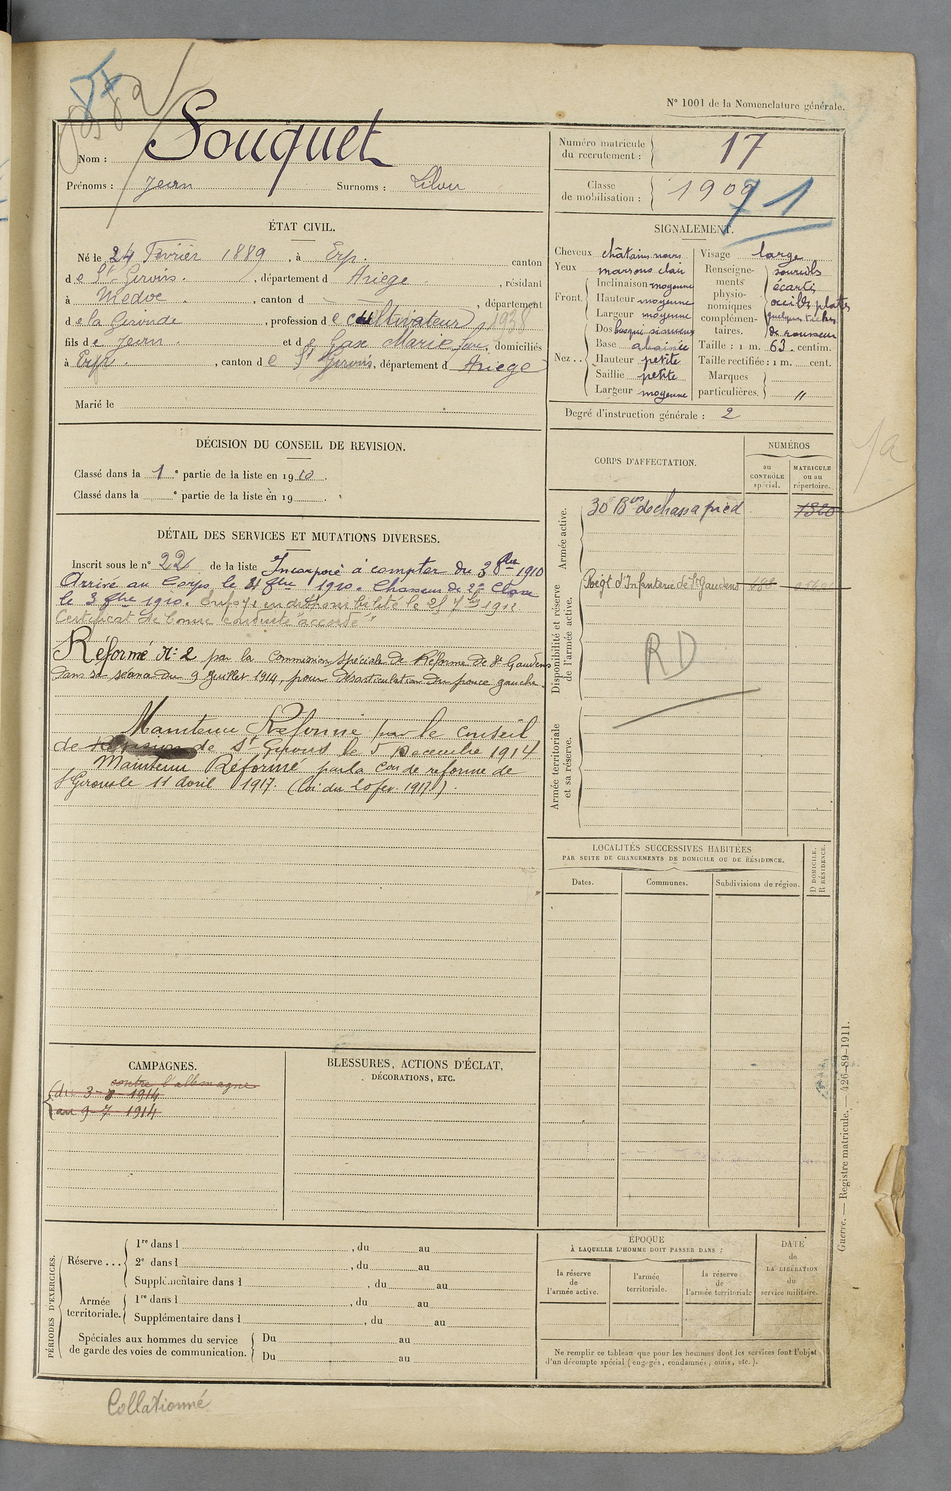 N° 1001 de la Nomenclature générale.
Nom : Souquet
Prénoms : Jean Surnoms :
Numéro matricule du recrutement : 17
Classe de mobilisation : 1909 71
ÉTAT CIVIL.
Né le 24 Février 1889, à Erp. canton
de St Girons., département d Ariege, résidant
à Medoc, canton d , département
de la Gironde, profession de cultivateur 1938
fils de Jean et de Gax Marie, domiciliés
à Erp, canton de St Girons, département d Ariege
Marié le
SIGNALEMENT.
Cheveux châtains noirs
Yeux marrons clair
Front. Inclinaison moyenne
Hauteur moyenne
Largeur moyenne
Nez .. Dos busqué sinueux
Base abaissée
Hauteur petite
Saillie petite
Largeur moyenne
Visage large
Renseignements physionomiques complémentaires. sourcils
écartés
oreilles plates
quelques taches
de rousseur
Taille : 1 m. 63 centim.
Taille rectifiée : 1 m. cent.
Marques particulières. "
Degré d'instruction générale : 2
DÉCISION DU CONSEIL DE REVISION.
Classé dans la 1e partie de la liste en 1910.
Classé dans la e partie de la liste en 19
CORPS D'AFFECTATION.
NUMÉROS
au CONTRÔLE spécial.
MATRICULE ou au répertoire.
Armée active.
30 Bon de chass a pied
Disponibilité et réserve de l'armée active.
Regt d'Infanterie de St Gaudens
RD
Armée territoriale et sa réserve.
DÉTAIL DES SERVICES ET MUTATIONS DIVERSES.
Inscrit sous le n° 22 de la liste Incorporé à compter du 3 8bre 1910
Arrivé au Corps le 8bre 1910. Chasseur de 2e Classe
le 3 8bre 1910. en disponibilité le 25 7bre 1912
Certificat de bonne conduite "accordé"
Réformé N° 2 par la Commission Spéciale de Réforme de St Gaudens
dans sa séance du 9 Juillet 1914, pour désarticulation du pouce gauche.
Maintenu Réformé par le Conseil
de de St Girons le 5 Décembre 1914
Maintenu Réformé par la Con de réforme de
St Girons le 11 Avril 1917. (Loi du 20 fév. 1917).
LOCALITÉS SUCCESSIVES HABITÉES
PAR SUITE DE CHANGEMENTS DE DOMICILE OU DE RÉSIDENCE.
Dates. Communes. Subdivisions de région.
D DOMICILE. R RÉSIDENCE.
CAMPAGNES.
contre l'allemagne
du 3-8 1914
au 9-7 1914
BLESSURES, ACTIONS D'ÉCLAT,
DÉCORATIONS, ETC.
PÉRIODES D'EXERCICES.
Réserve ... 1re dans l , du au
2e dans l , du au
Supplémentaire dans l , du au
Armée territoriale. 1re dans l , du au
Supplémentaire dans l , du au
Spéciales aux hommes du service de garde des voies de communication. Du au
Du au
ÉPOQUE
À LAQUELLE L'HOMME DOIT PASSER DANS :
la réserve de l'armée active.
l'armée territoriale.
la réserve de l'armée territoriale
DATE de LA LIBÉRATION du service militaire.
Ne remplir ce tableau que pour les hommes dont les services font l'objet
d'un décompte spécial (engagés, condamnés, omis, etc.).
Guerre. — Registre matricule. — 426-89-1911.
Collationné